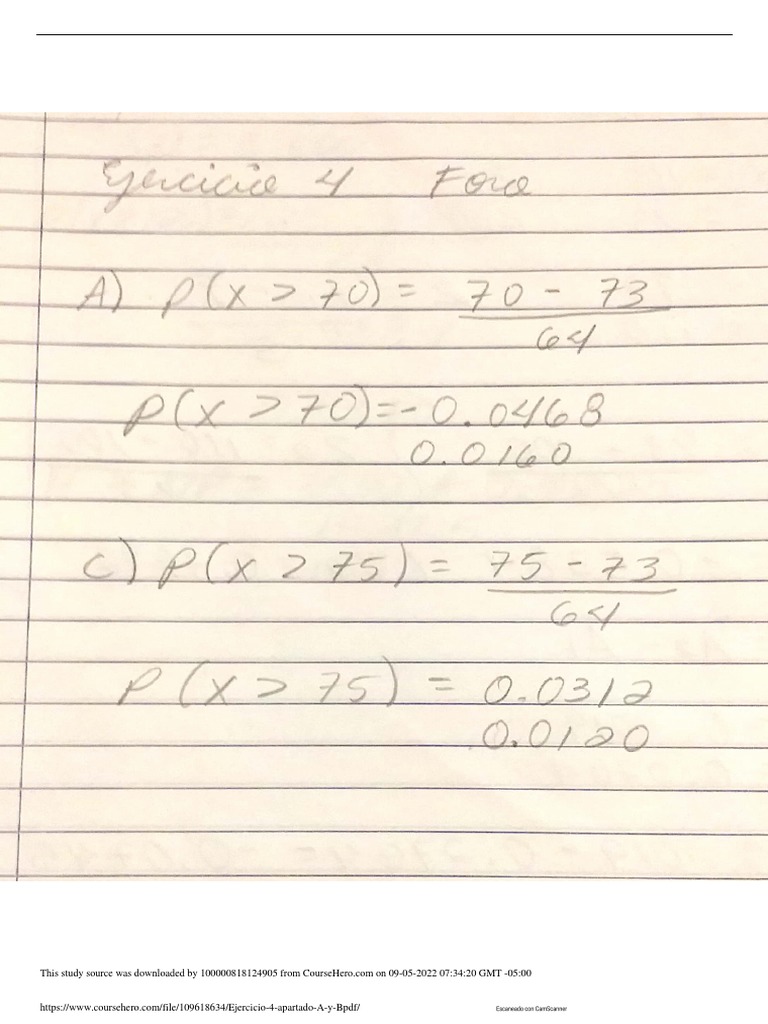 Ejercicio 4 Foro
A) P(x > 70) = 70 - 73
64
P(x > 70) = - 0.0468
0.0160
C) P(x > 75) = 75 - 73
64
P(x > 75) = 0.0312
0.0120
This study source was downloaded by 100000818124905 from CourseHero.com on 09-05-2022 07:34:20 GMT -05:00
https://www.coursehero.com/file/109618634/Ejercicio-4-apartado-A-y-Bpdf/
Escaneado con CamScanner